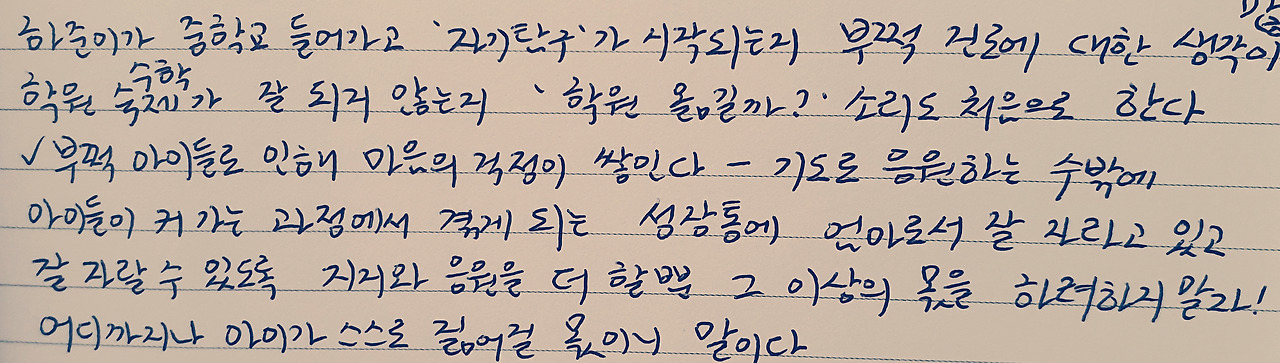 하준이가 중학교 들어가고 '자기탐구'가 시작되는지 부쩍 진로에 대한 생각이
학원 수학 숙제가 잘 되지 않는지 '학원 옮길까?' 소리도 처음으로 한다
✓부쩍 아이들로 인해 마음의 걱정이 쌓인다 - 기도로 응원하는 수밖에
아이들이 커 가는 과정에서 겪게 되는 성장통에 엄마로서 잘 자라고 있고
잘 자랄 수 있도록 지지와 응원을 더 할 뿐 그 이상의 몫을 하려하지 말자!
어디까지나 아이가 스스로 짊어질 몫이니 말이다